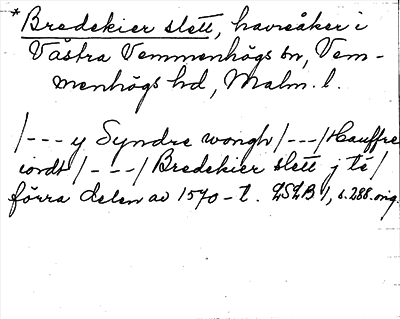 *Bredekier slett, havreåker i
Västra Vemmenhögs sn, Vem-
menhögs hd, Malm. l.
/---y Syndre wongh/---/Hauffre
iordt/---/Bredekier slett j té/
förra delen av 1570-t. LSLB 1, s. 288. orig.